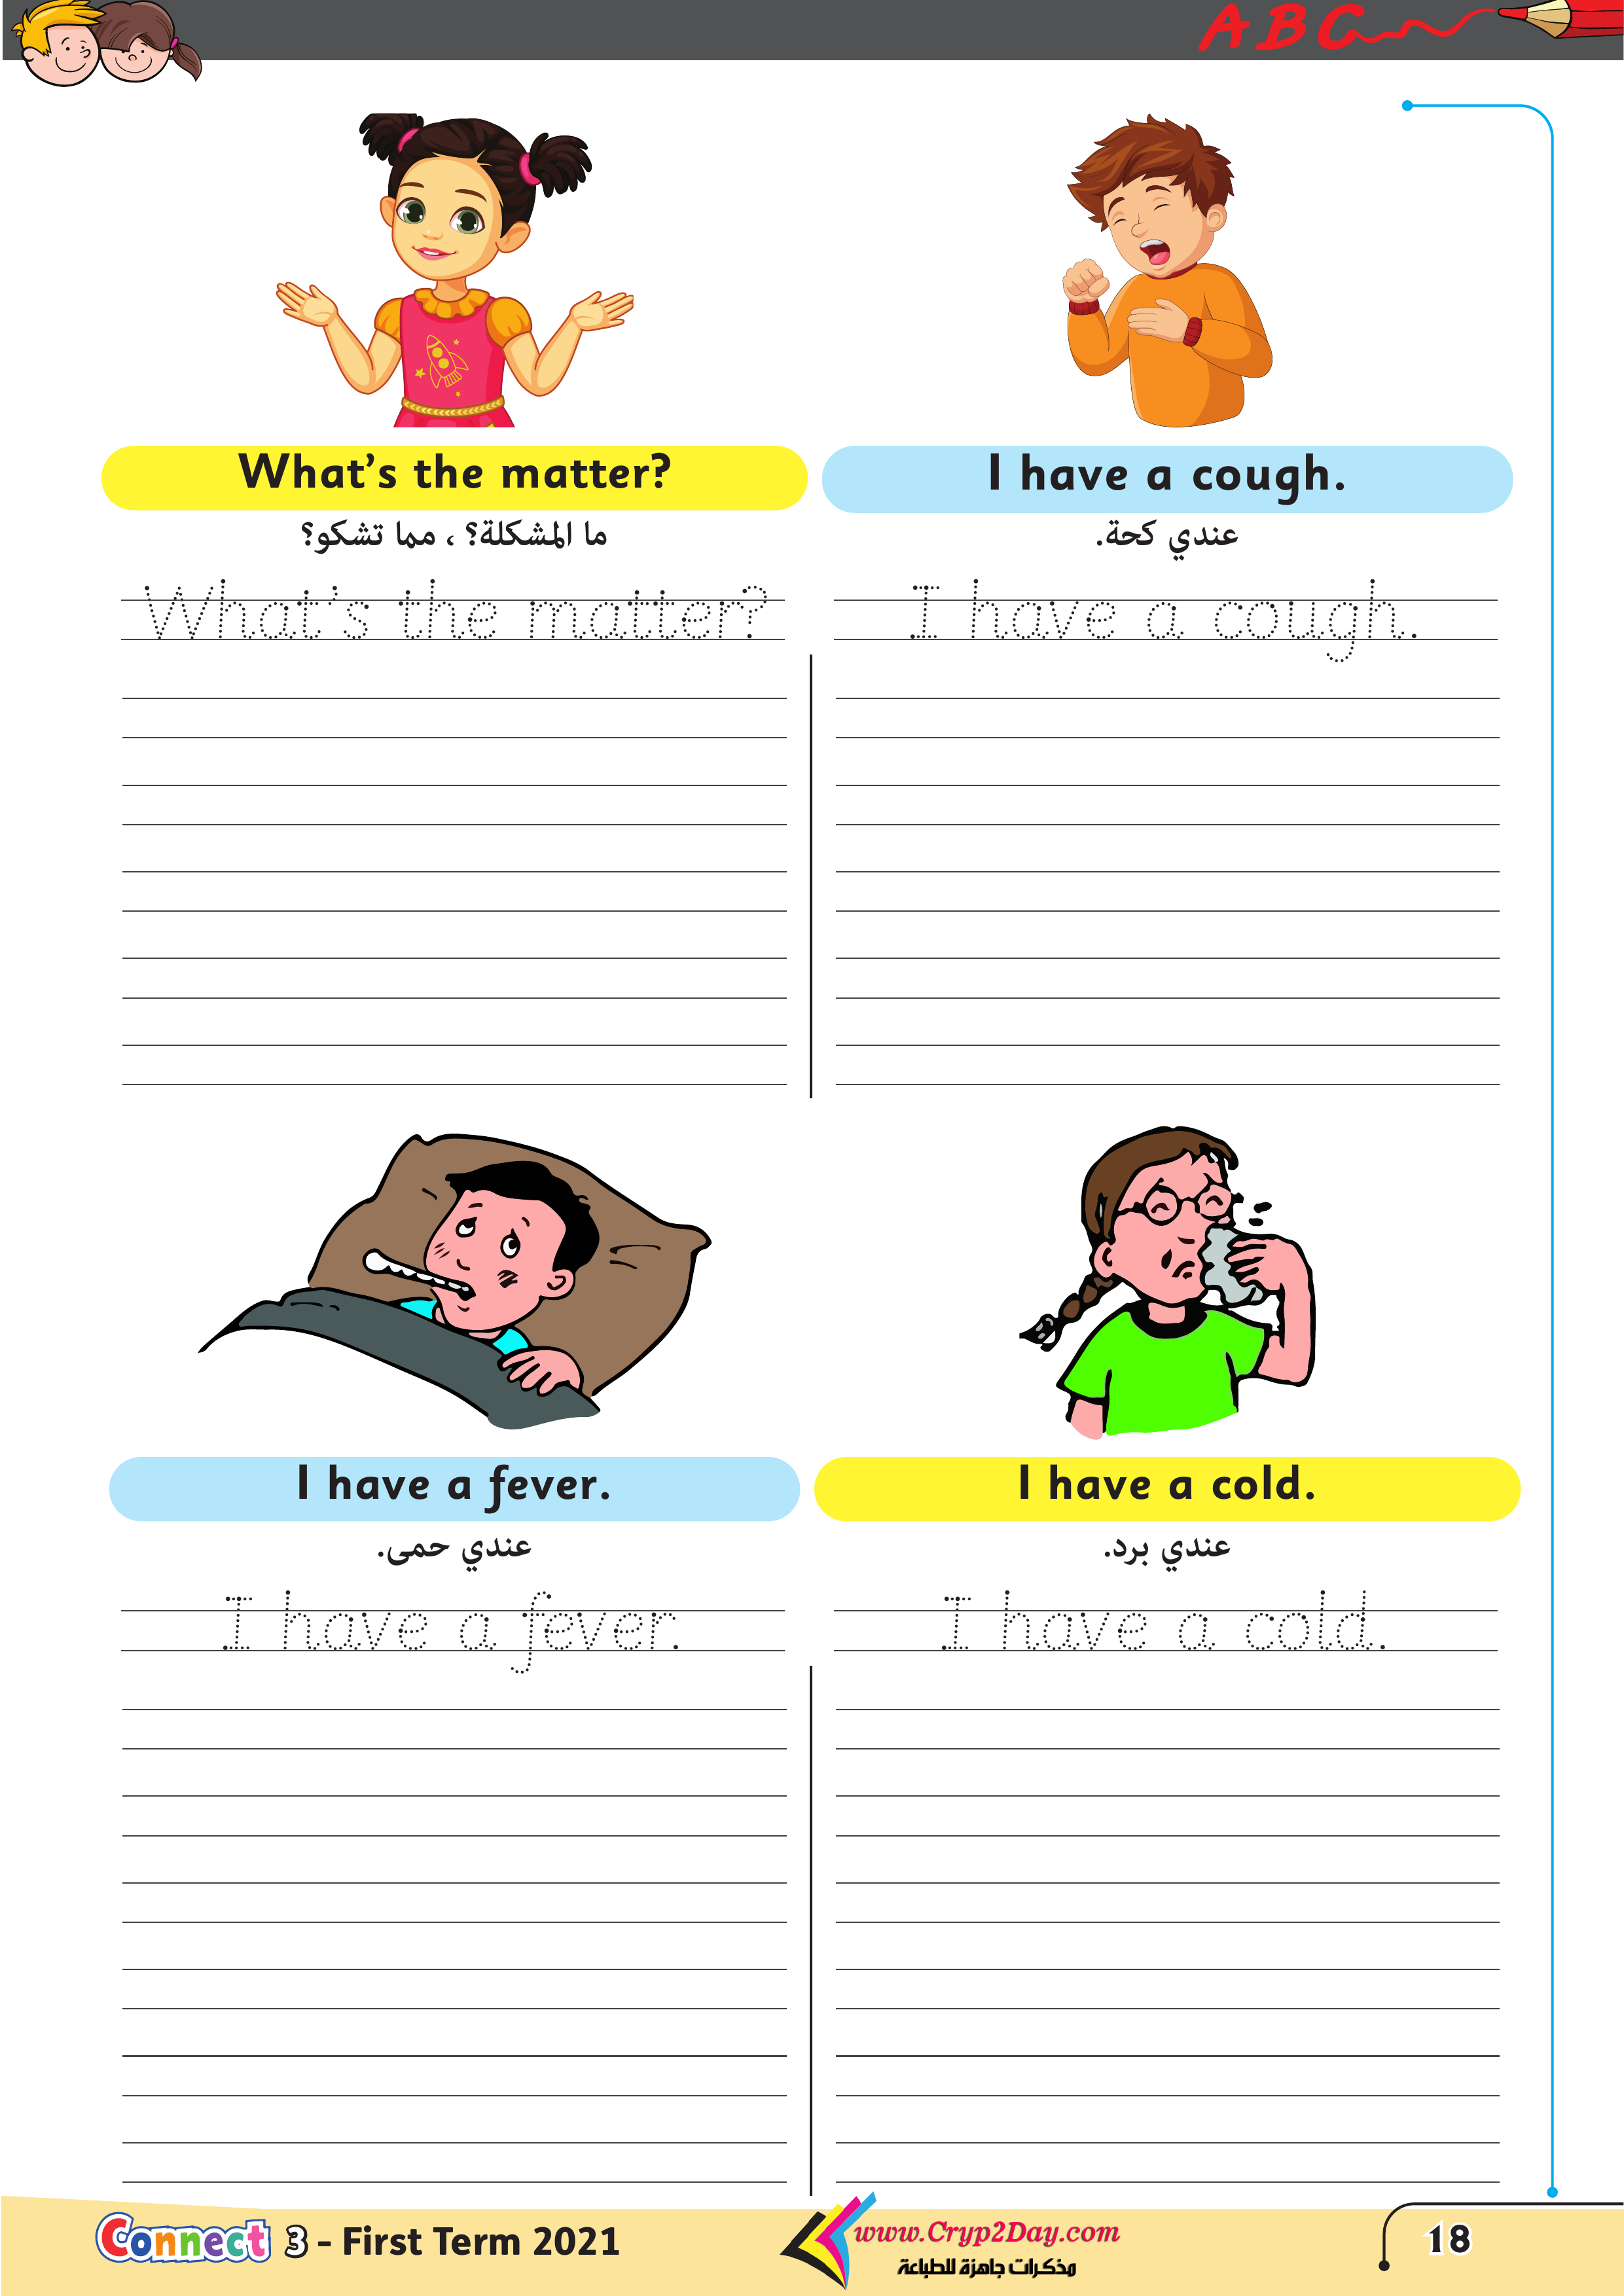 ABC
What's the matter?
ما المشكلة؟ ، مما تشكو؟
What's the matter?
I have a cough.
عندي كحة.
I have a cough.
I have a fever.
عندي حمى.
I have a fever.
I have a cold.
عندي برد.
I have a cold.
Connect 3 - First Term 2021
www.Cryp2Day.com
مذكرات جاهزة للطباعة
18